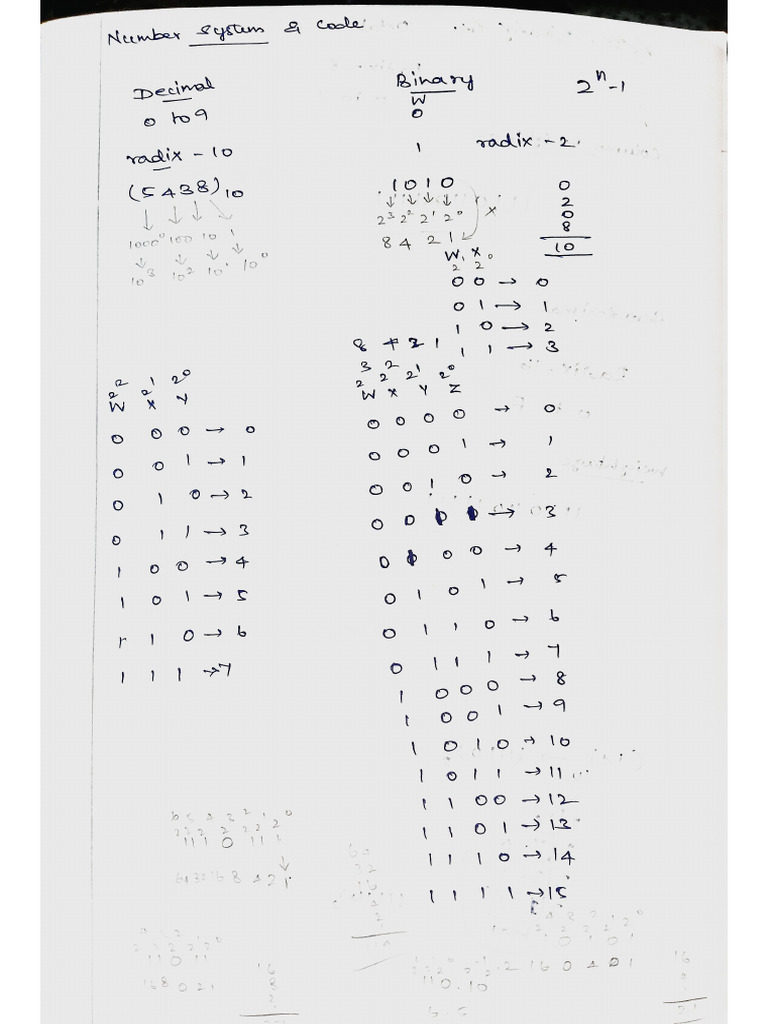 Number System & Code
Decimal
0 to 9
radix - 10
(5438)10
1000 100 10 1
10^3 10^2 10^1 10^0
Binary 2^n-1
W
0
1 radix - 2.
1010
2^3 2^2 2^1 2^0 X
8 4 2 1
0
2
0
8
10
W X
2^1 2^0
0 0 → 0
0 1 → 1
1 0 → 2
1 1 → 3
2^2 2^1 2^0
W X Y
0 0 0 → 0
0 0 1 → 1
0 1 0 → 2
0 1 1 → 3
1 0 0 → 4
1 0 1 → 5
1 1 0 → 6
1 1 1 → 7
8 4 2 1
2^3 2^2 2^1 2^0
W X Y Z
0 0 0 0 → 0
0 0 0 1 → 1
0 0 1 0 → 2
0 0 1 1 → 3
0 1 0 0 → 4
0 1 0 1 → 5
0 1 1 0 → 6
0 1 1 1 → 7
1 0 0 0 → 8
1 0 0 1 → 9
1 0 1 0 → 10
1 0 1 1 → 11
1 1 0 0 → 12
1 1 0 1 → 13
1 1 1 0 → 14
1 1 1 1 → 15
1 1 1 0 1 1 1
1 1 0 1 1
16 8 0 2 1
16 0 4 0 1
110.10
6.5